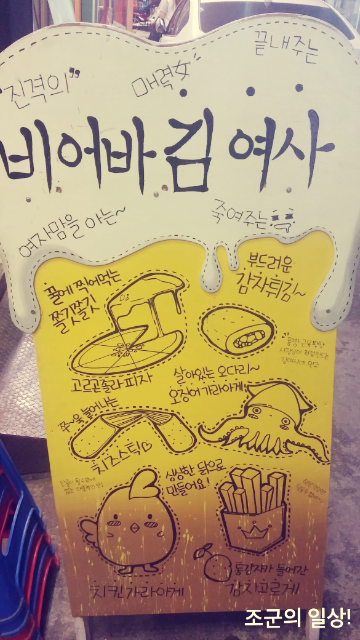 끝내주는
"진격의"
매력女
비어바 김 여사
여자맘을 아는~
죽여주는
부드러운
감자튀김~
꿀에 찍어먹는
쫄깃쫄깃
고르곤졸라 피자
살아있는 오다리~
오징어 가라아게
쭈~욱 늘어나는
치즈스틱♡
싱싱한 닭으로
만들어요!
치킨 가라아게
통감자가 들어간
감자고로케
조군의 일상!